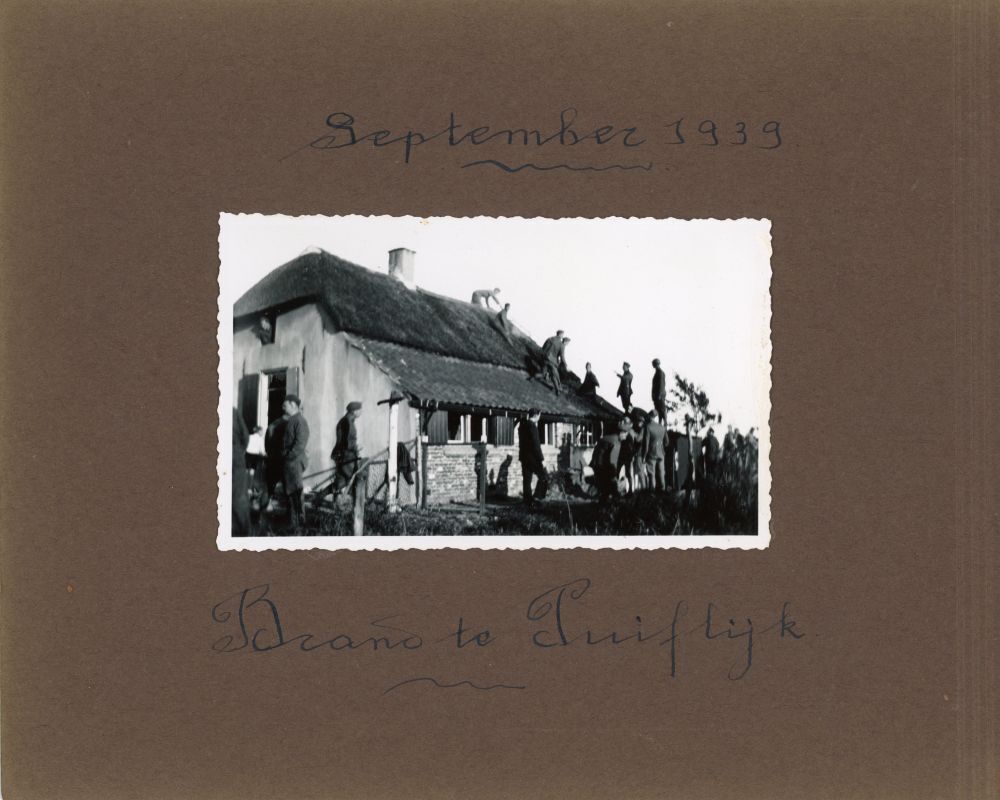 September 1939.
Brand te Puiflijk.